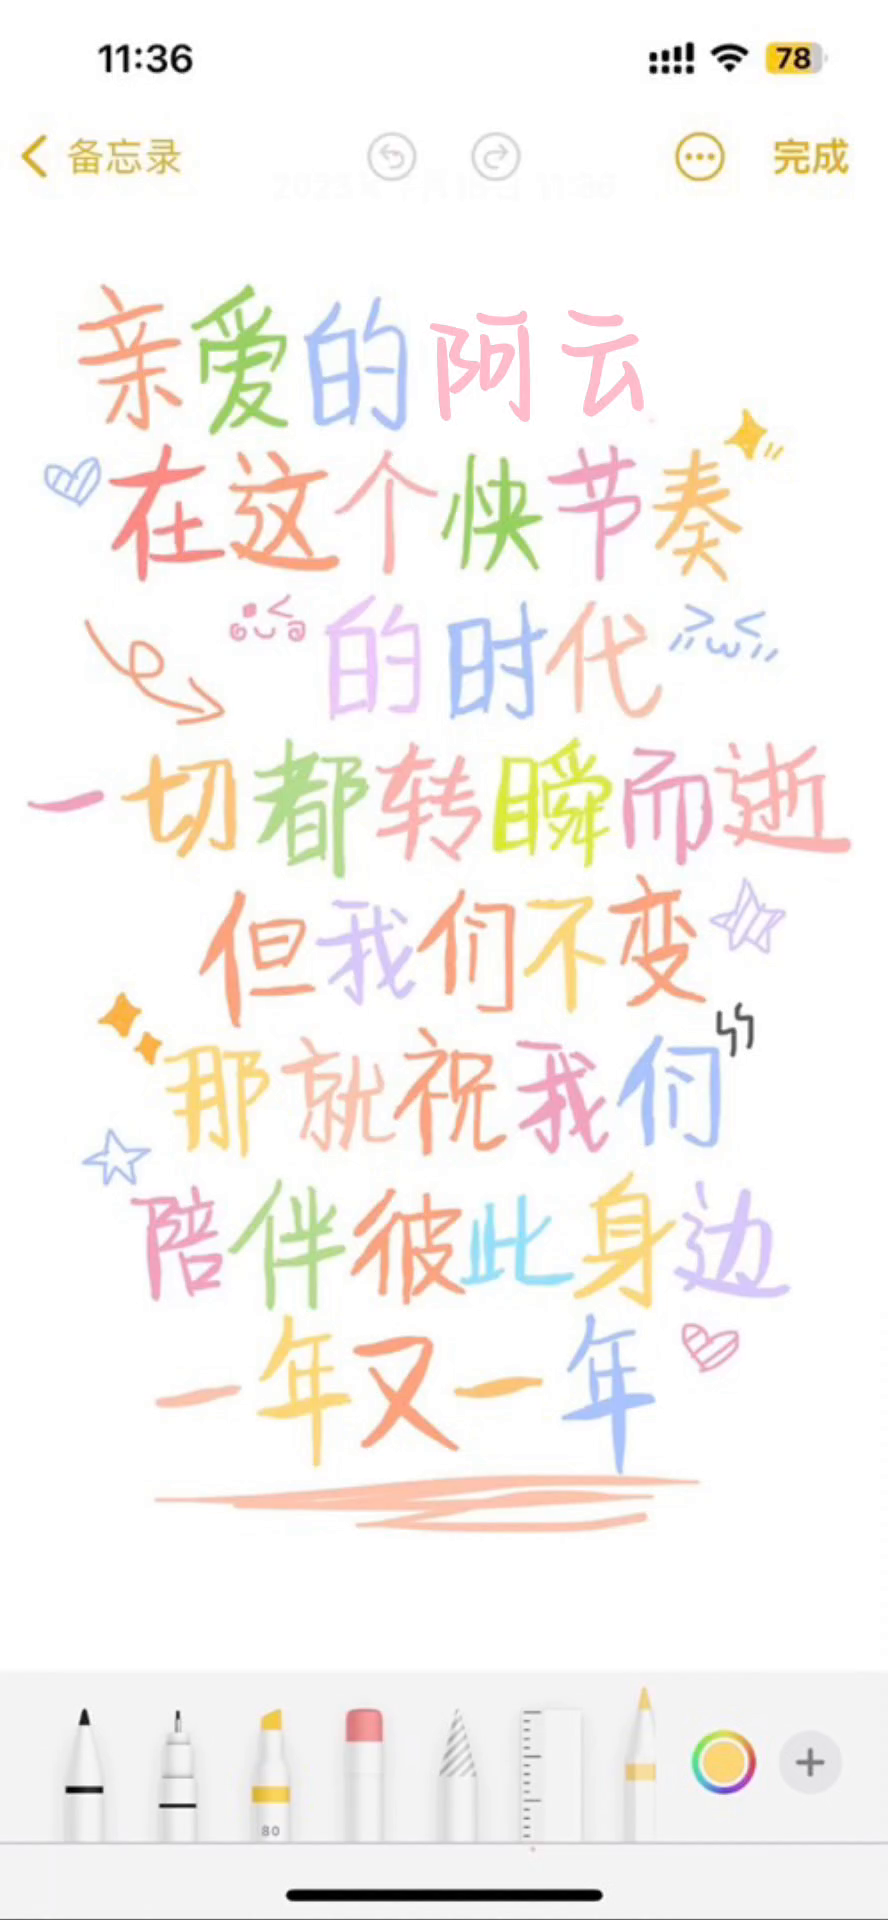 11:36
78
备忘录
完成
亲爱的阿云
在这个快节奏
的时代
一切都转瞬而逝
但我们不变
那就祝我们
陪伴彼此身边
一年又一年
80